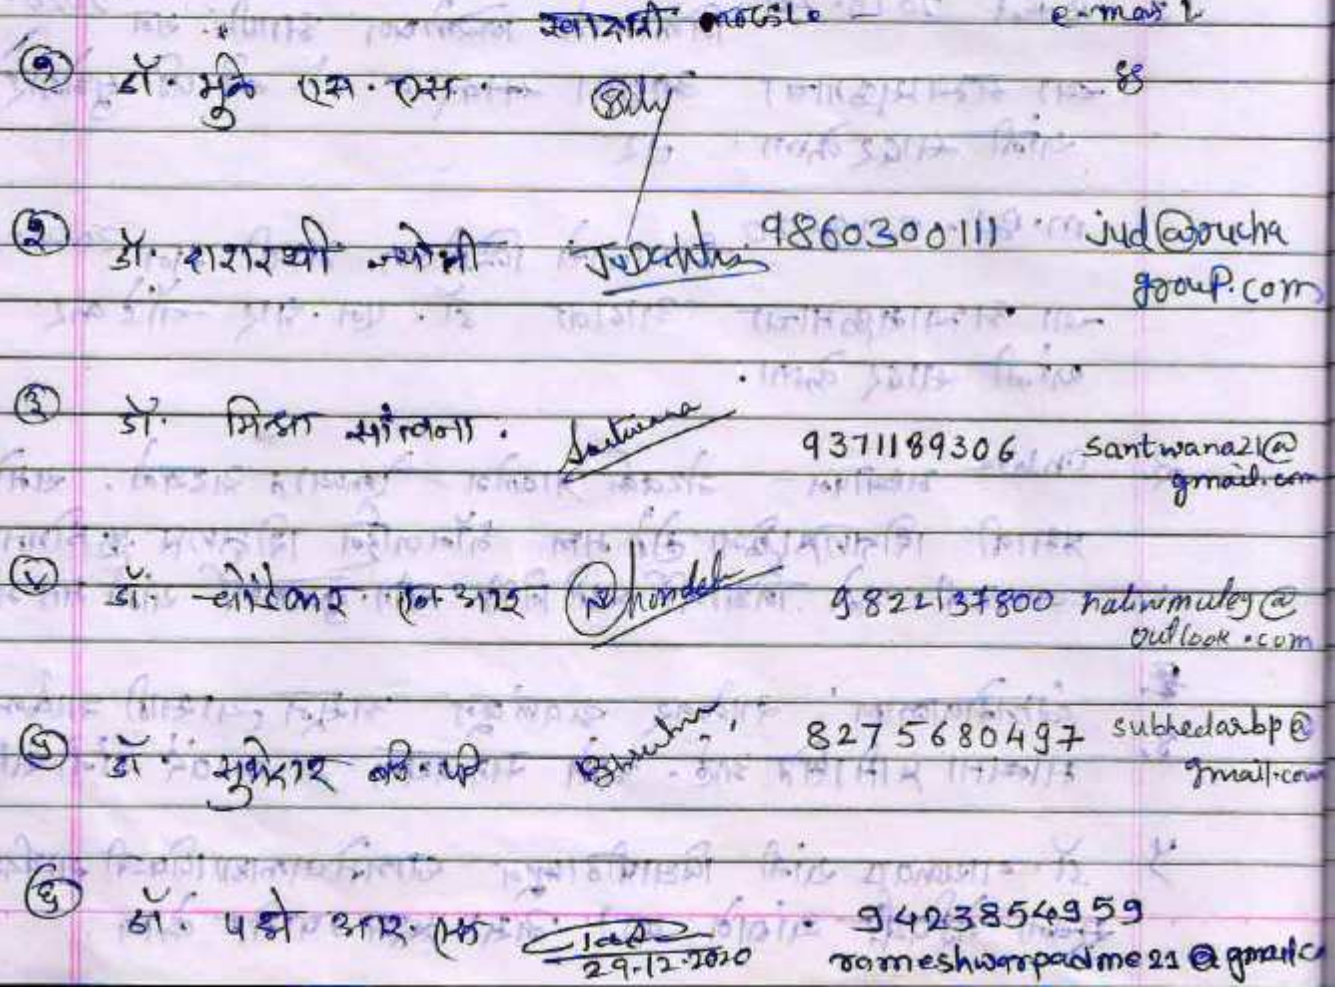 स्वाक्षरी mobile e-mail
१ डॉ. मुळे एस. एस.
२ डॉ. दाशरथी ज्योती 9860300111 jud@rucha
group.com
३ डॉ. मिश्रा सांत्वना. Santwana 9371189306 santwana21@
gmail.com
४ डॉ. धोंडेकर एन आर 9822137800 nalinimuley@
outlook.com
५ डॉ. सुभेदार बी. पी 8275680497 subhedarbp@
gmail.com
६ डॉ. पद्मे आर. एम. 9423854959
29-12-2020 rameshwarpadme21@gmail.c